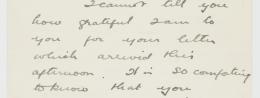 I cannot tell you
how grateful I am to
you for your letter
which arrived this
afternoon. It is so comforting
to know that you